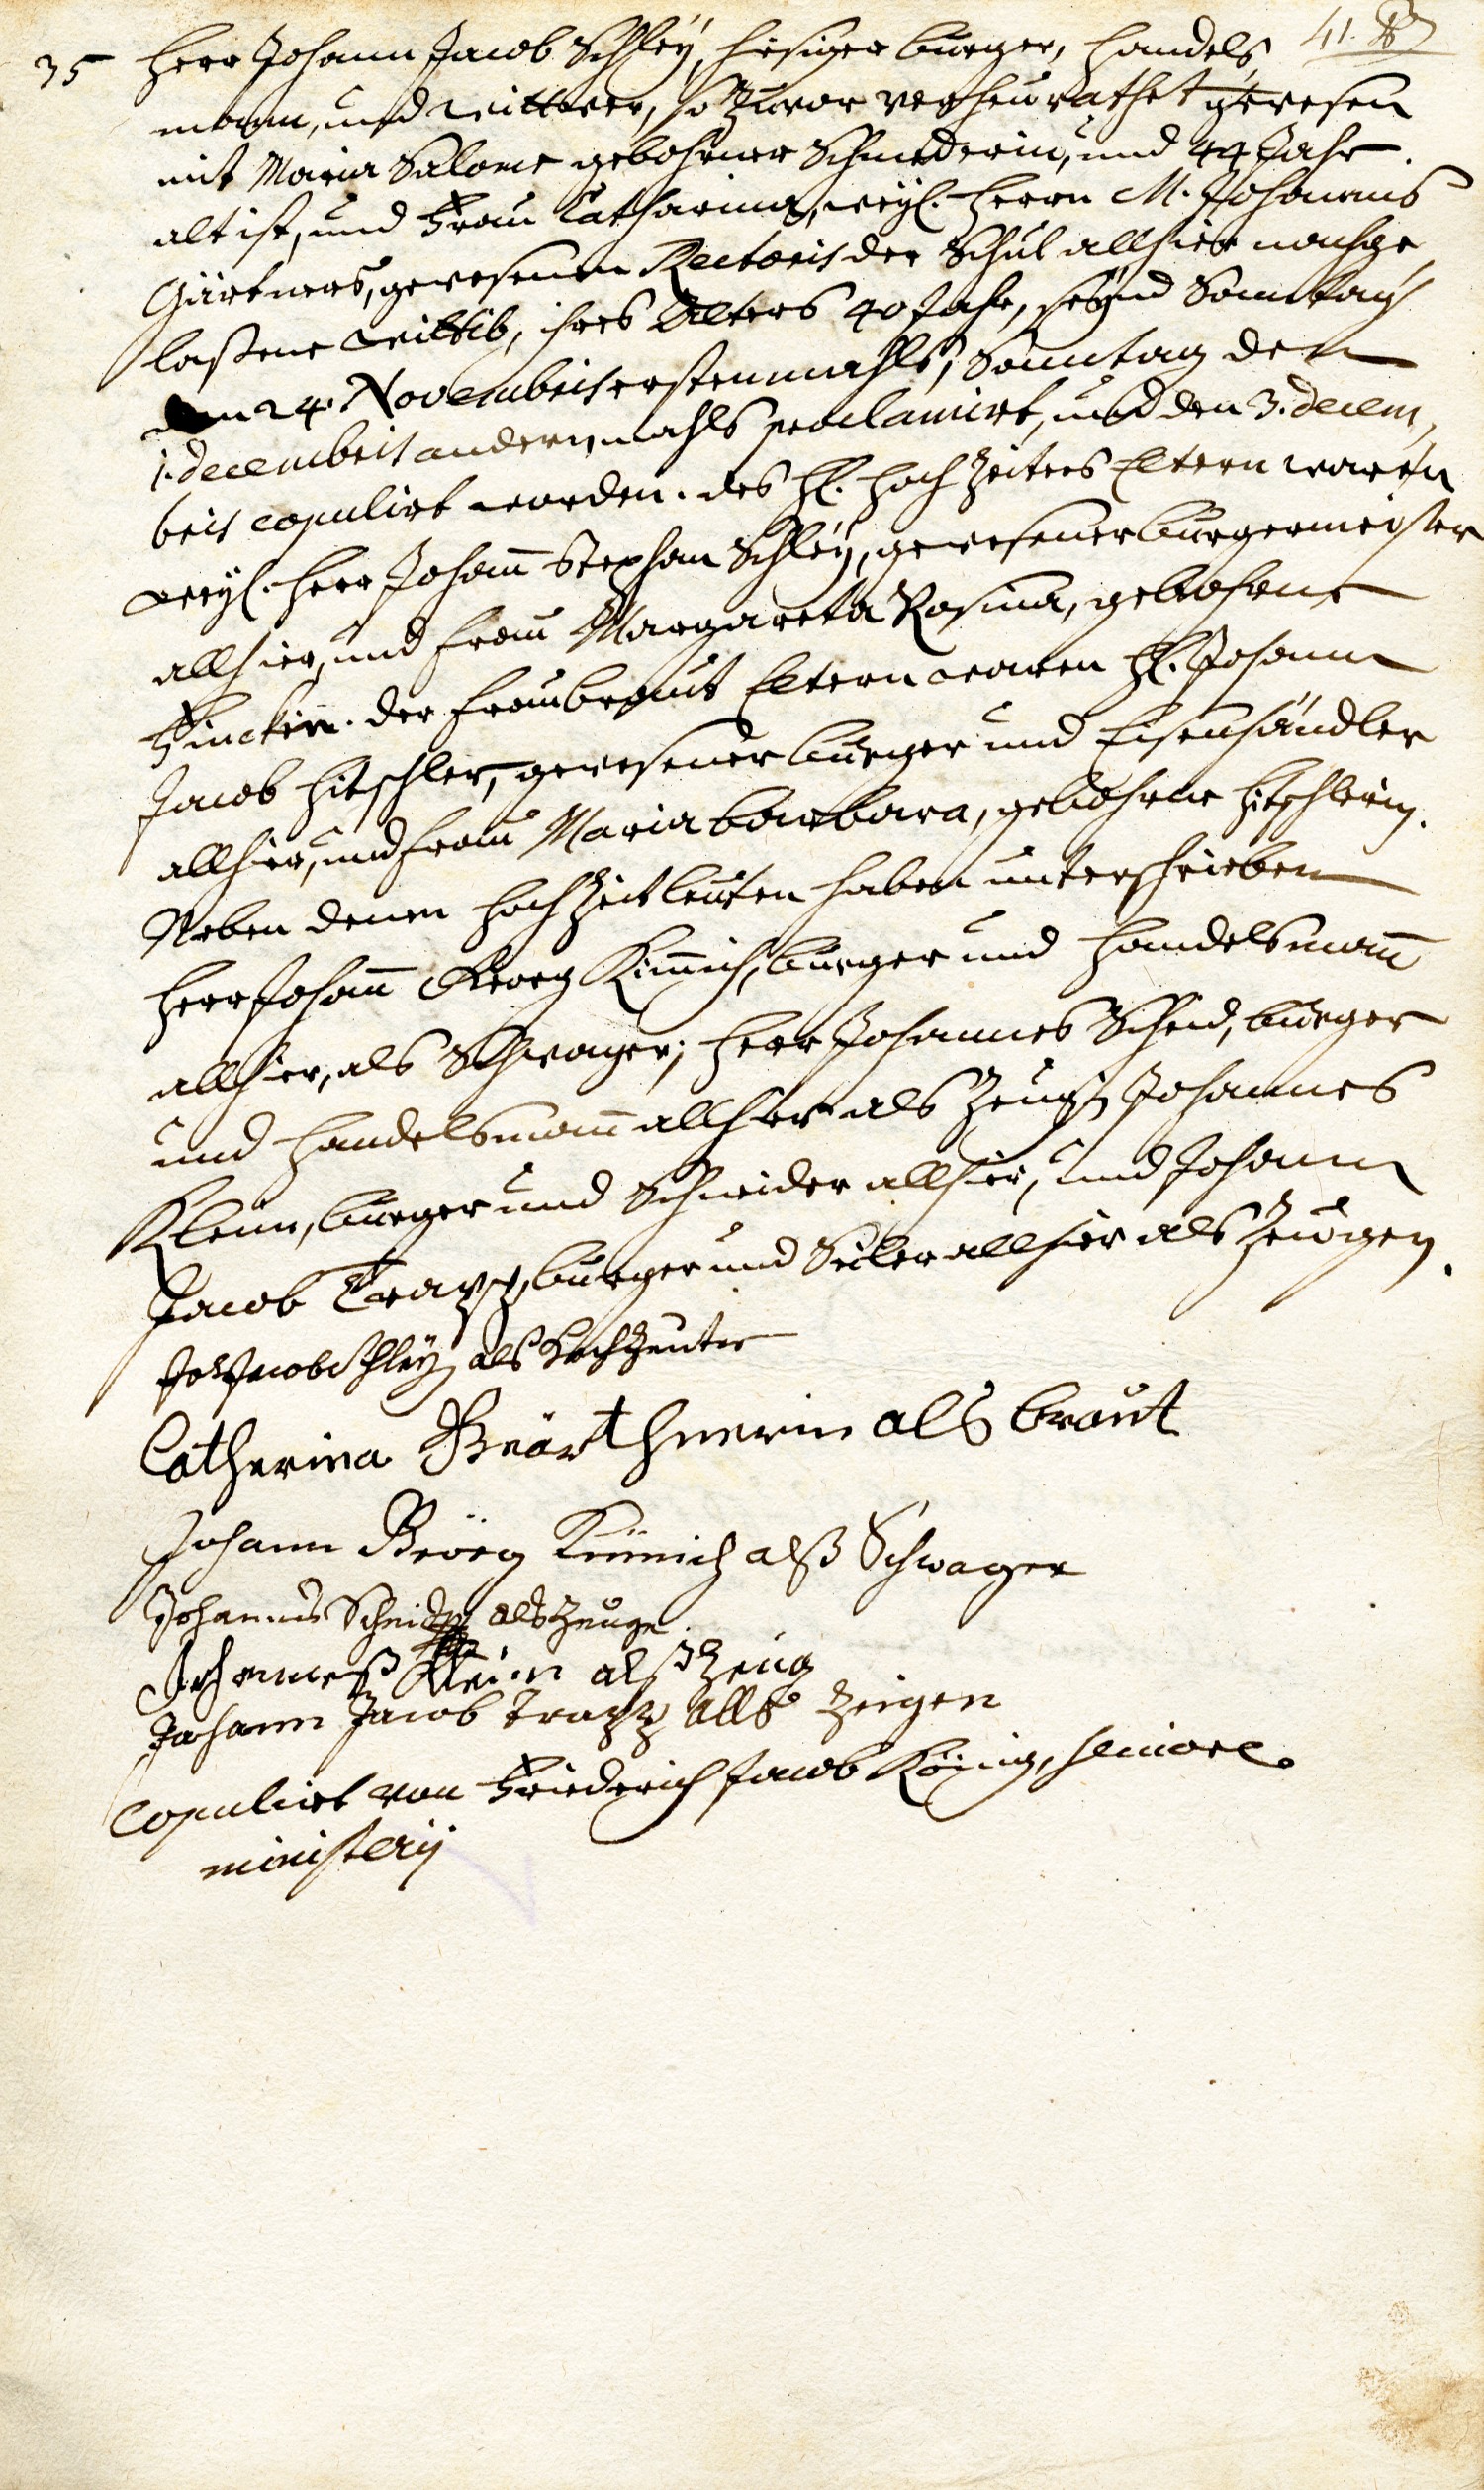 41.
35 Herr Johann Jacob Schleÿ, hiesiger burger, handels
mann, und Wittwer, so zuvor verheurathet gewesen
mit Maria Salome gebohrner Schmederin, und 44 Jahr
alt ist, und Frau Catharina, weyl. Herrn M. Johannis
Gärtners, gewesenen Rectoris der Schul allhier nachge
laßene Wittib, ihres Alters 40 Jahr, seÿnd Sonntag
den 24. Novembris erstenmahls, Sonntag den
1. decembris andernmahls proclamirt, und den 3. decem,
bris copulirt worden. des H. hochzeiters Eltern waren
weyl. Herr Johann Stephan Schleÿ, gewesener burgermeister
allhier, und Frau Margareta Rosina, gebohrne
Finckin. der Frau braut Eltern waren H. Johann
Jacob Hitschler, gewesener burger und Eisenhändler
allhier, und Frau Maria barbara, gebohrne Hitschlerin.
Neben denen Hochzeitleuten haben unterschrieben
Herr Johann Georg Kimich, burger und Handelsmann
allhier, als Schwager; Herr Johannes Scheid, burger
und Handelsmann allhier als Zeug, Johannes
Klein, burger und Schneider allhier, und Johann
Jacob Trapp, burger und Seiler allhier als Zeugen.
Joh Jacob Schleÿ als Hochzeuter
Catherina Geärthnerin als braut
Johann Geörg Kimich alß Schwager
Johannes Scheid als Zeuge.
Johanneß Klein alß Zeug
Johann Jacob Trapp alls Zeigen
Copulirt von Friederich Jacob König, seniore
ministerij